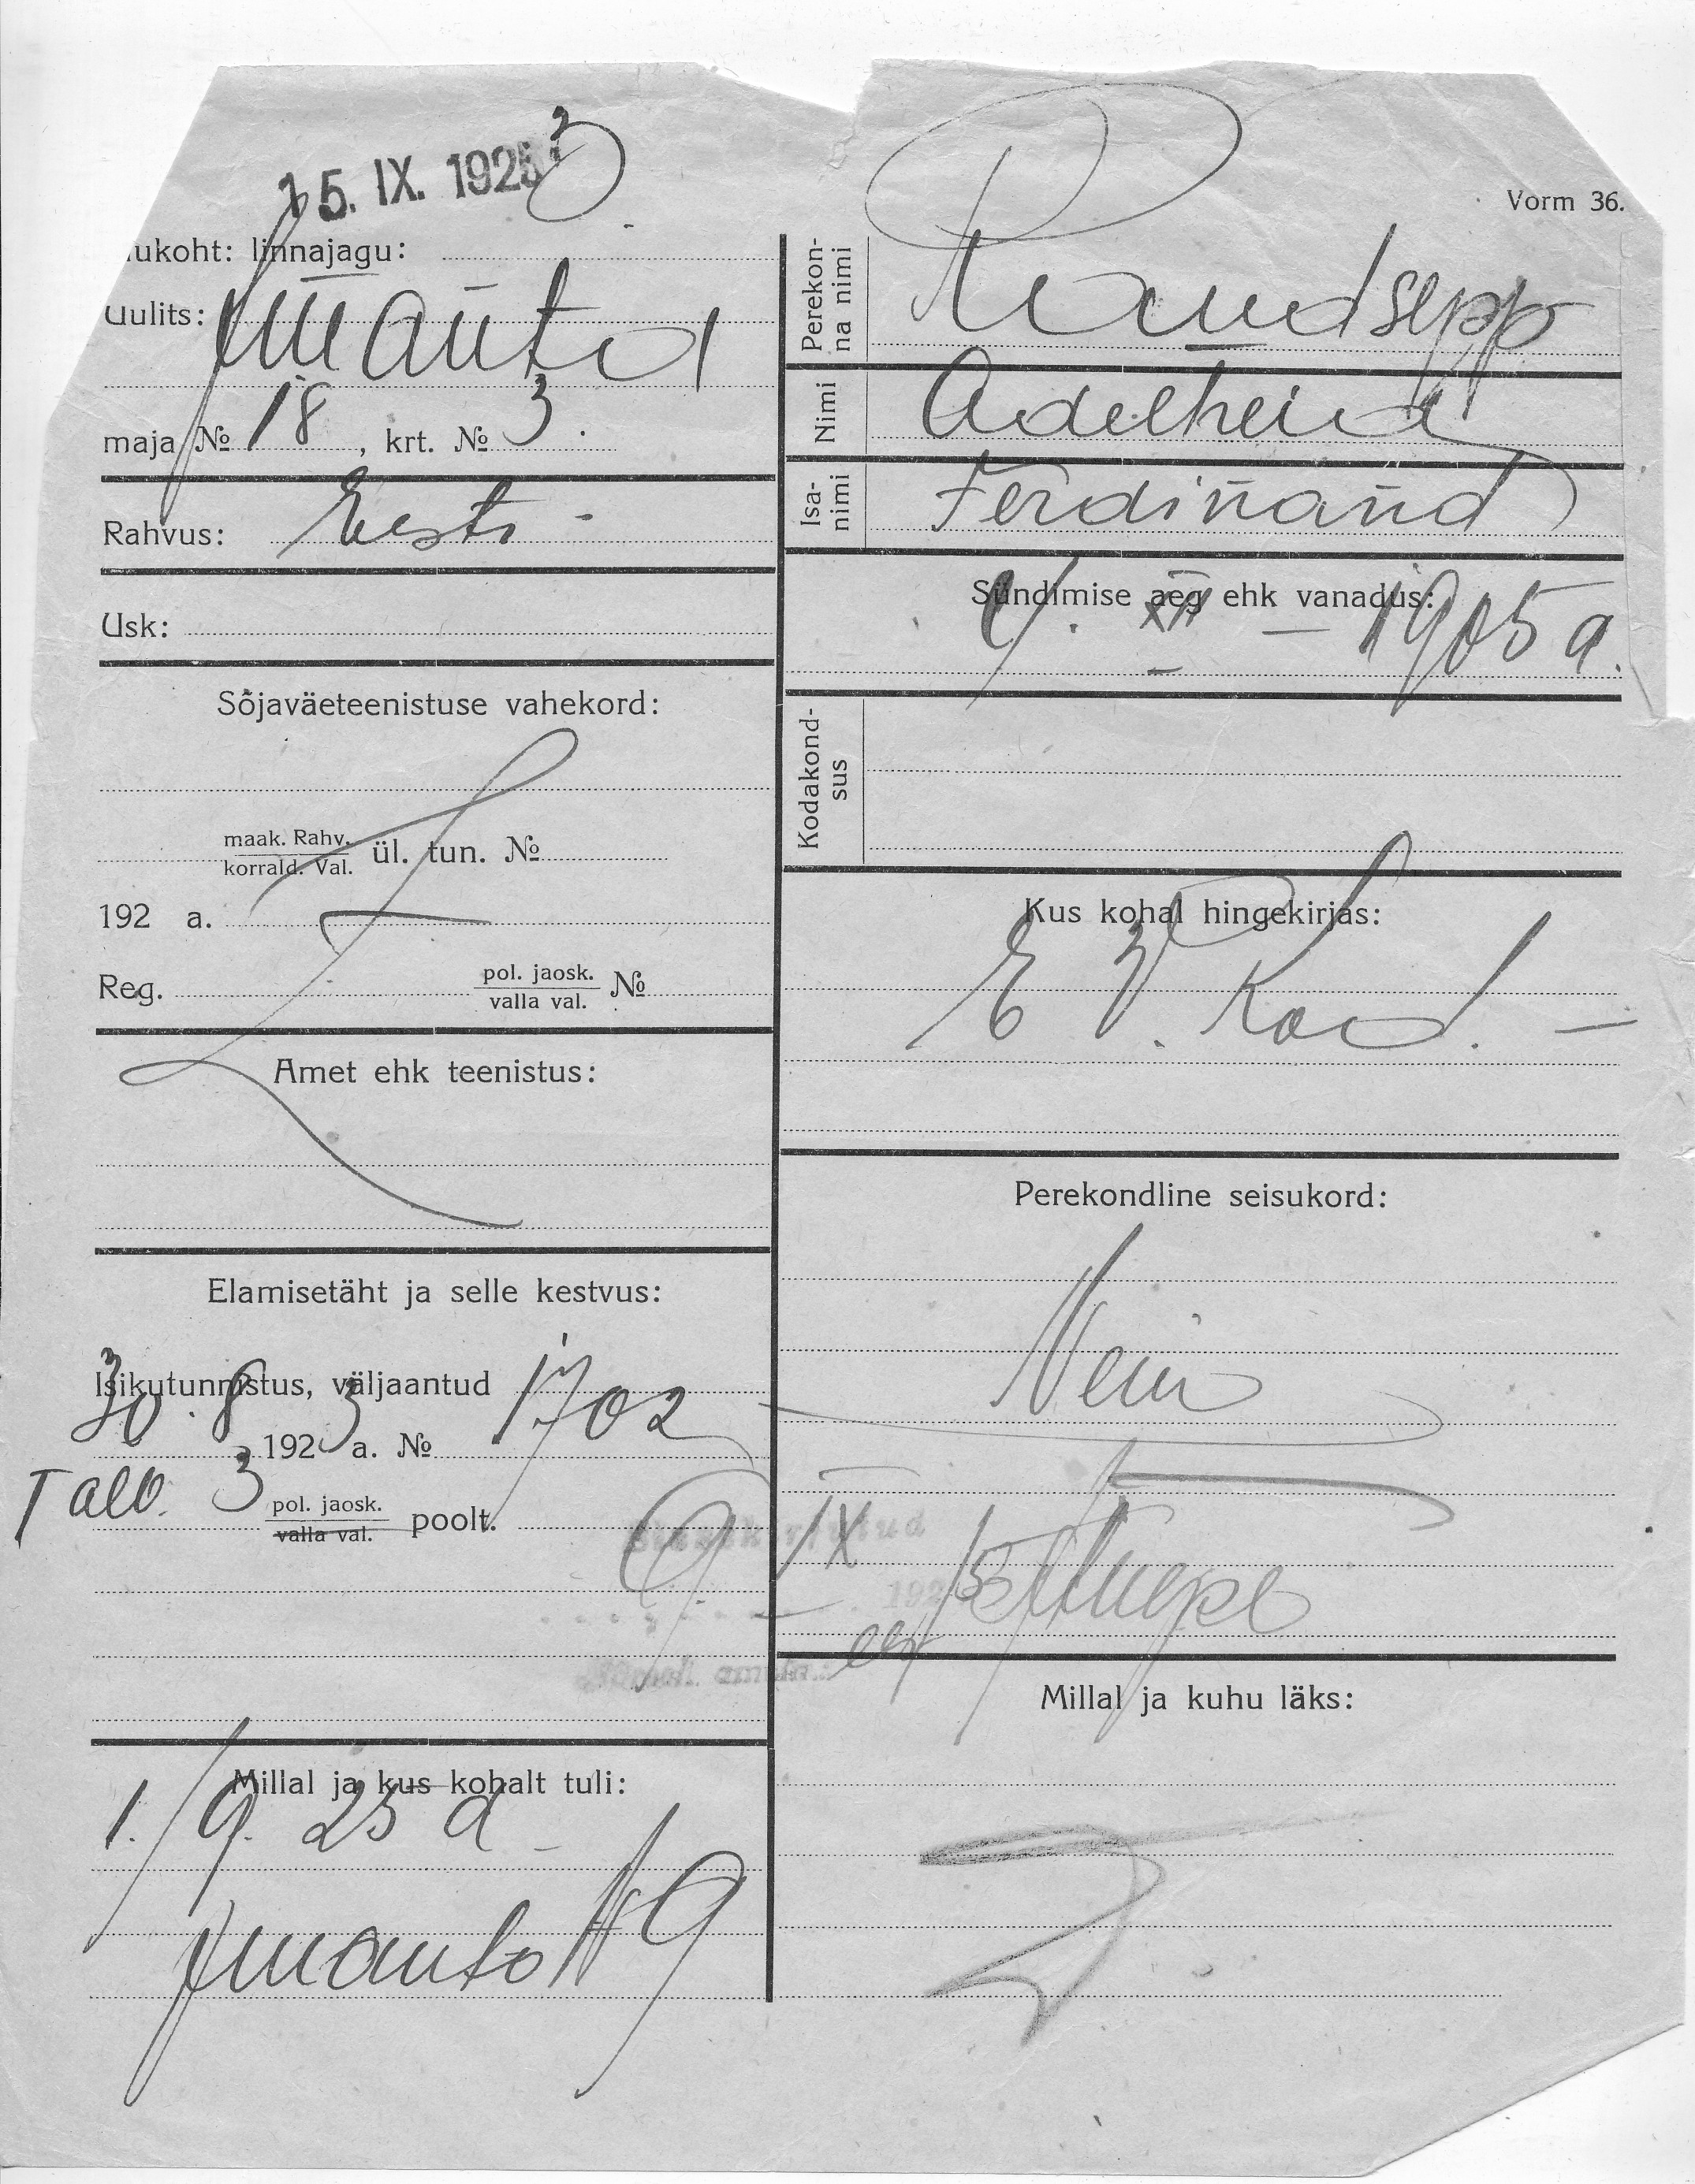 15. IX. 1925
3
Vorm 36.
ukoht: linnajagu:
Uulits: Imanta
maja № 18, krt. № 3.
Rahvus: Eesti -
Usk:
Sõjaväeteenistuse vahekord:
maak. Rahv.
korrald. Val. ül. tun. №
192 a.
Reg. pol. jaosk.
valla val. №
Amet ehk teenistus:
Elamisetäht ja selle kestvus:
Isikutunnistus, väljaantud
30. 8 1923 a. № 1702
Tall. 3 pol. jaosk.
valla val. poolt.
Millal ja kus kohalt tuli:
1./9. 25 a
Imanta № 9
Perekon-
na nimi
Raudsepp
Nimi Adelheid
Isa-
nimi Ferdinand
Sündimise aeg ehk vanadus:
9. XII — 1905 a.
Kodakond-
sus
Kus kohal hingekirjas:
E V. Kod. —
Perekondline seisukord:
IX
192
Millal ja kuhu läks: